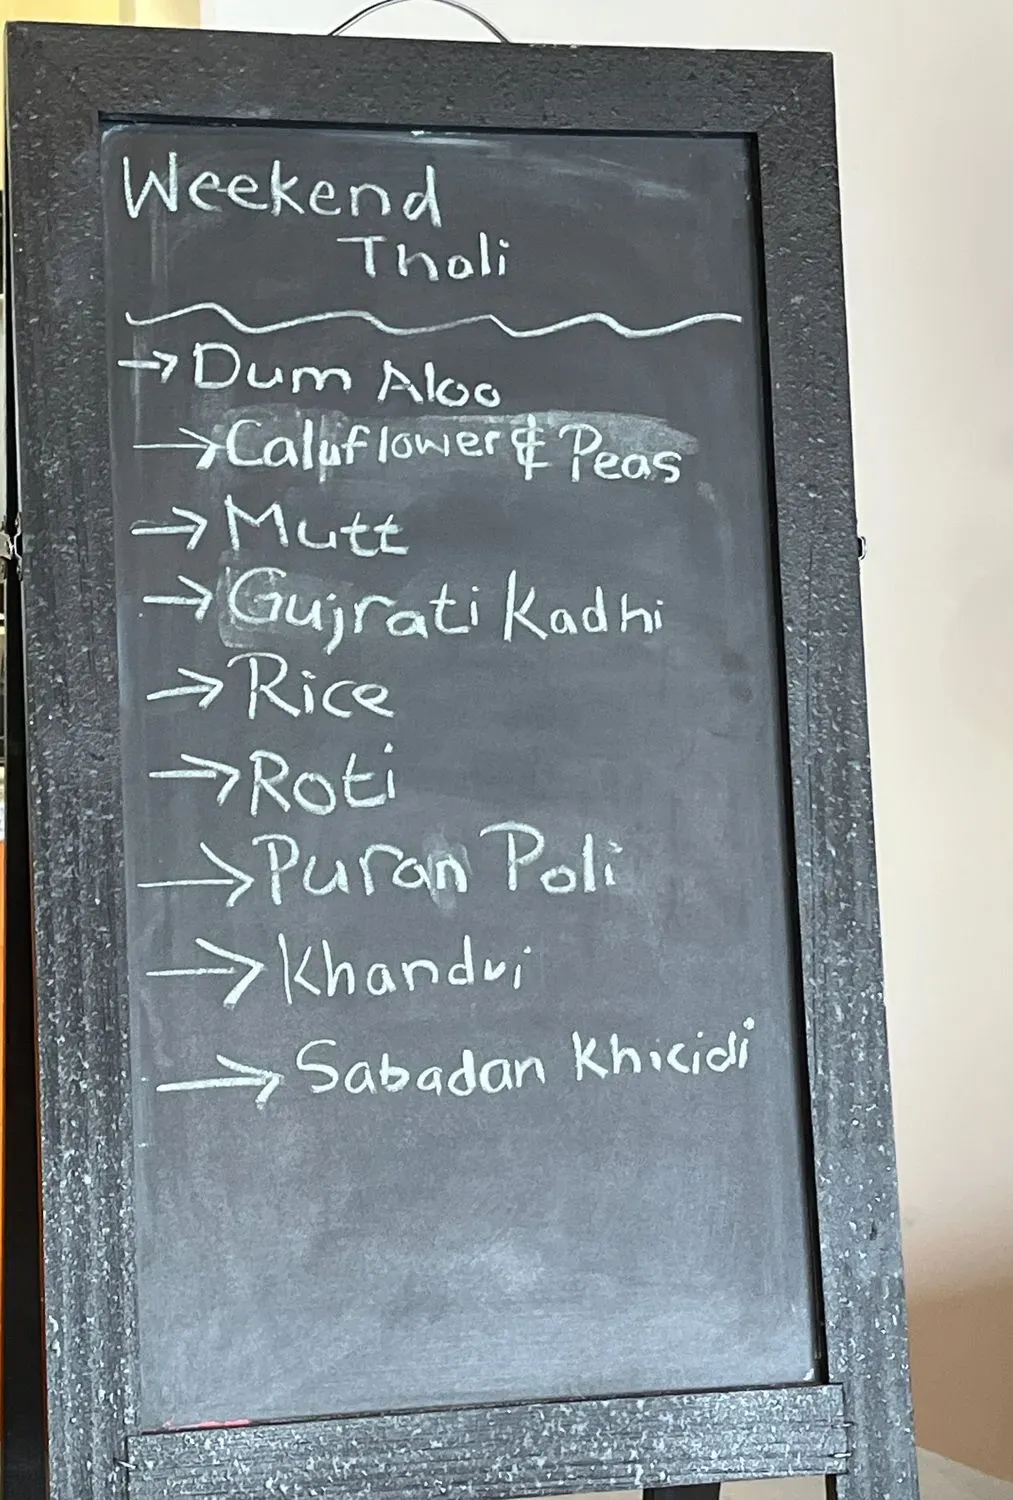 Weekend
Thali
→ Dum Aloo
→ Caluflower & Peas
→ Mutt
→ Gujrati Kadhi
→ Rice
→ Roti
→ Puran Poli
→ Khandvi
→ Sabadan Khicidi